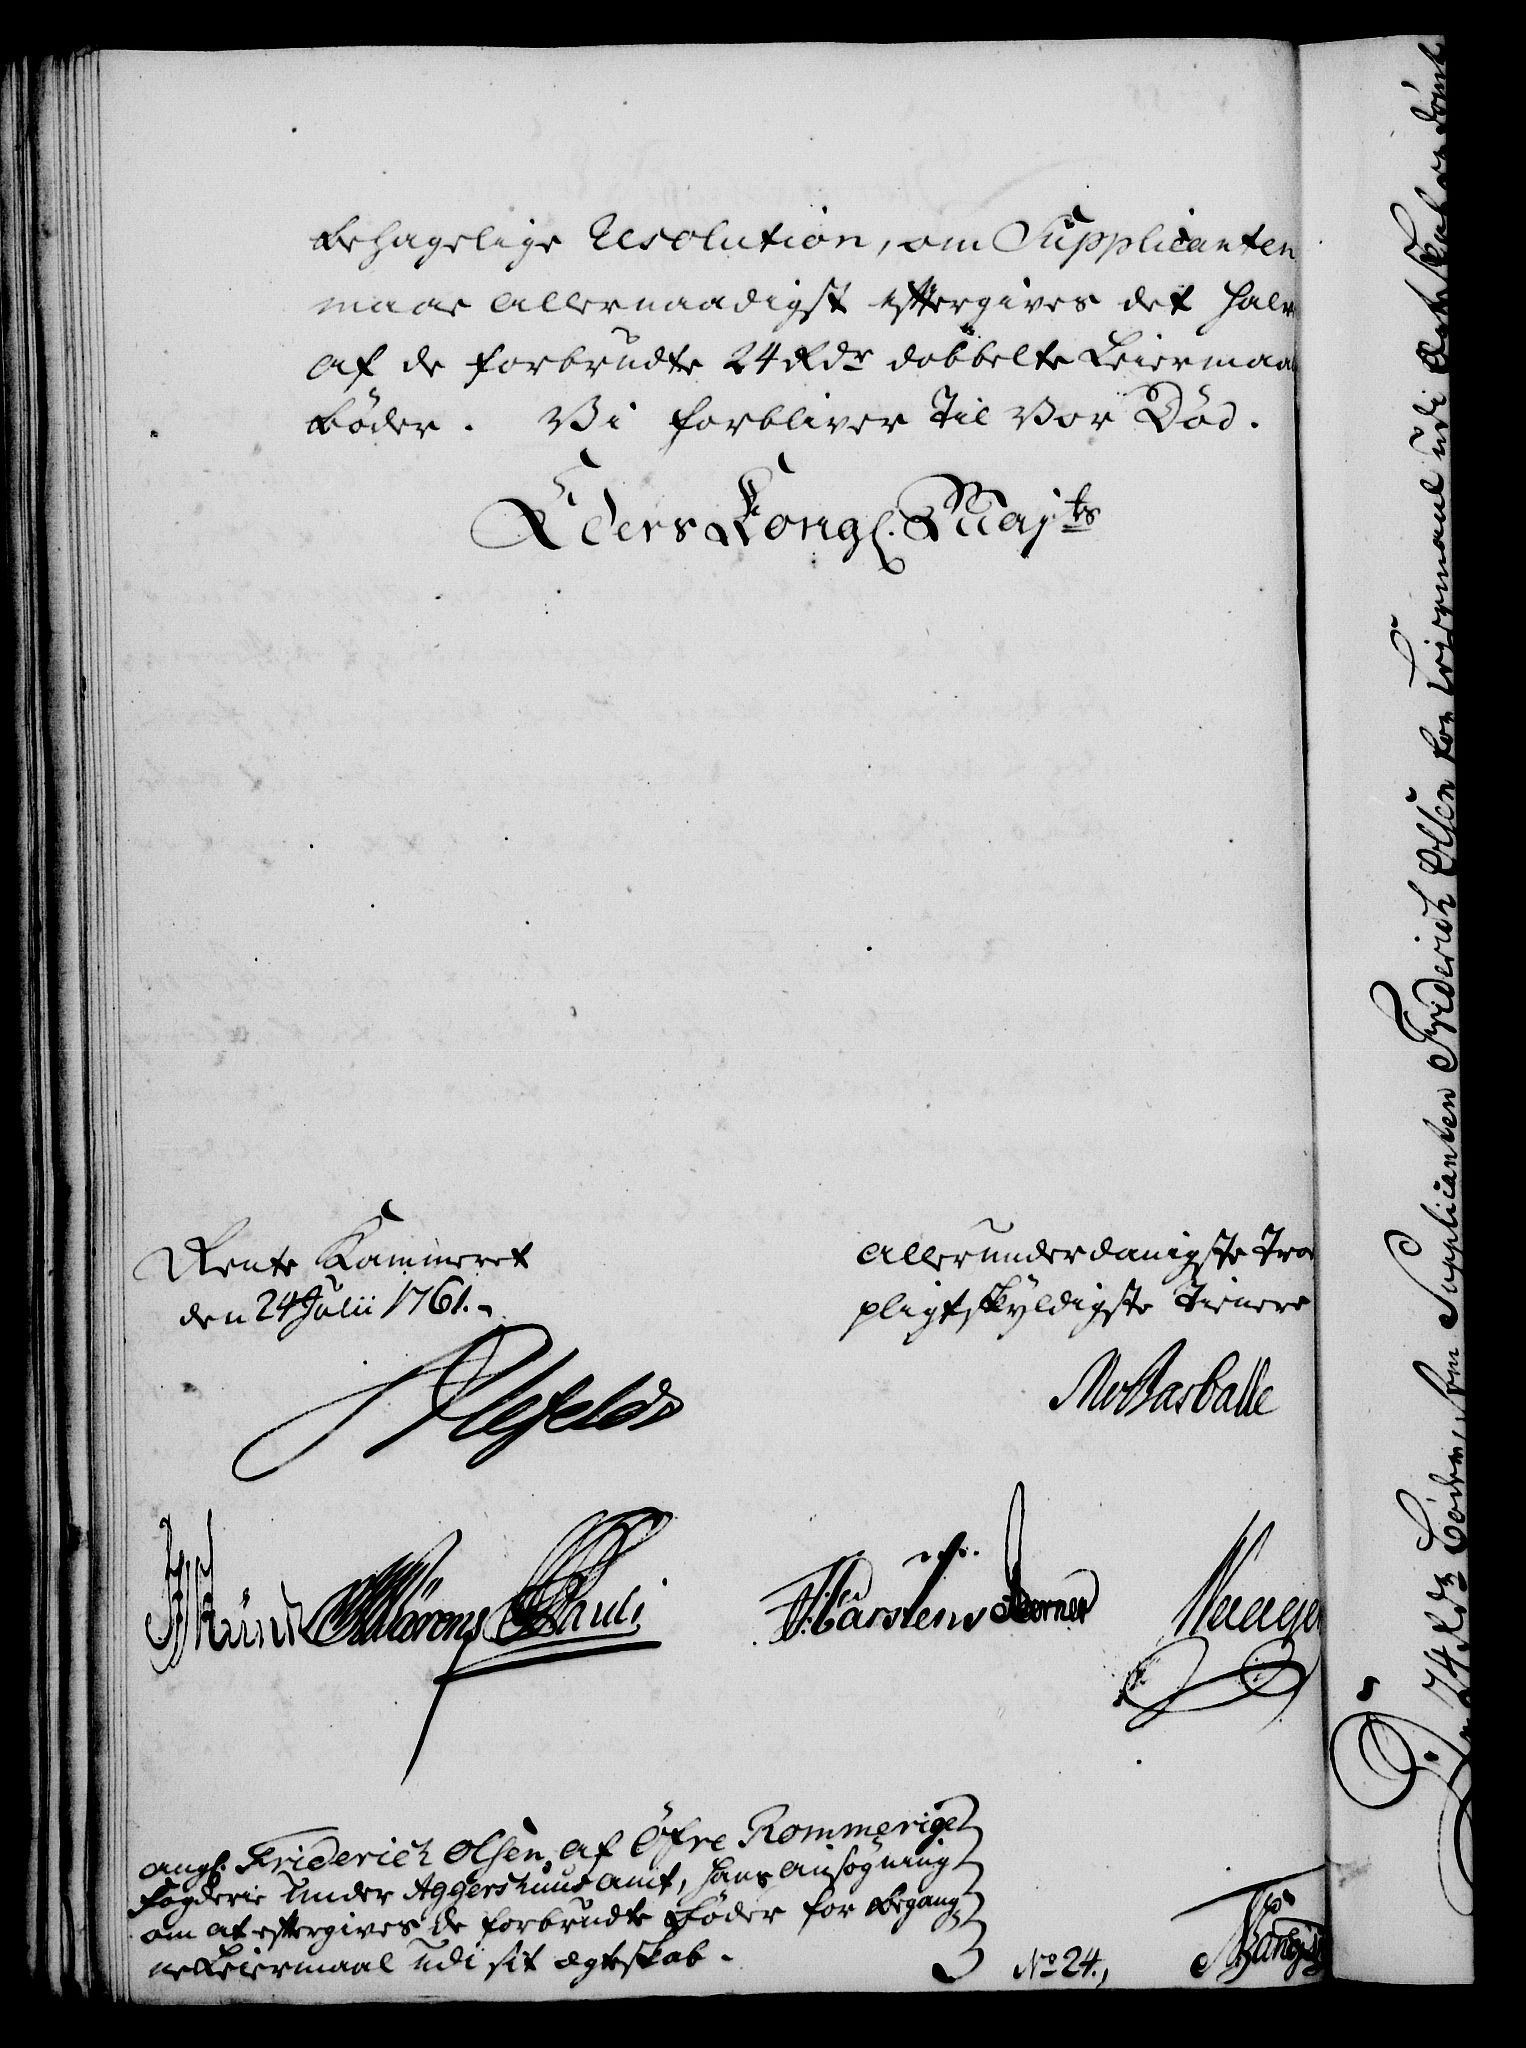 behagelige Resolution, om Supplicanten
maae allernaadigst eftergives det halve
af de forbrudte 24 Rdr dobbelte Leiermaals
Bøder. Vi forbliver til Vor Død.
Eders Kongl. Majts
Rente Kammeret
den 24 Julii 1761.
allerunderdanigste Troe
pligtskyldigste Tienere
Alefeldt
Holst
Pauli
J. Carstens
angl. Friderich Olsen, af Öfre Rommerige
Fogderie under Aggershuus amt, hans ansøgning
om at eftergives de forbrudte Bøder for begang-
ne Leiermaal udi sit ægteskab.
No 24.,
24 Rdr Bøder, som Supplicanten Friderich Olsen for Leiermaal udi Ægteskab er dømt